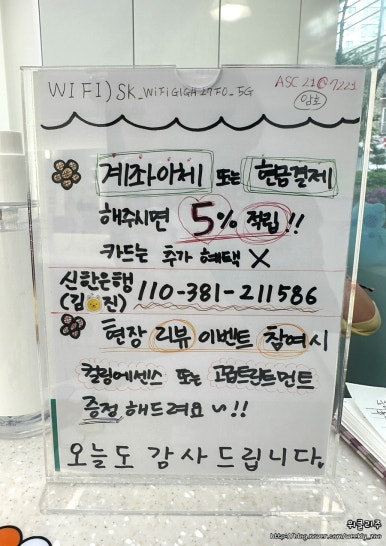 WIFI) SK_WiFiGIGA27F0_5G
ASC21@7221
암호
계좌이체 또는 현금결제
해주시면 5% 적립!!
카드는 추가 혜택 X
신한은행 110-381-211586
(김 진)
현장 리뷰 이벤트 참여시
컬링에센스 또는 고급트린트먼트
증정 해드려요~!!
오늘도 감사드립니다.
위클리주